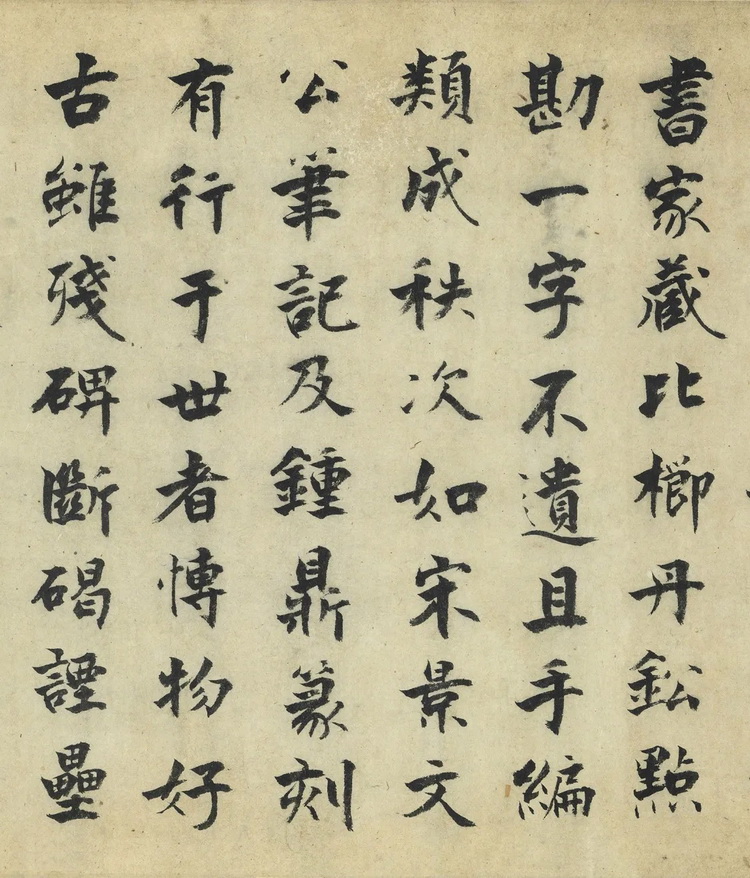 書家藏比櫛丹鈆點
勘一字不遺且手編
類成秩次如宋景文
公筆記及鍾鼎篆刻
有行于世者愽物好
古雖殘碑斷碣諲壘